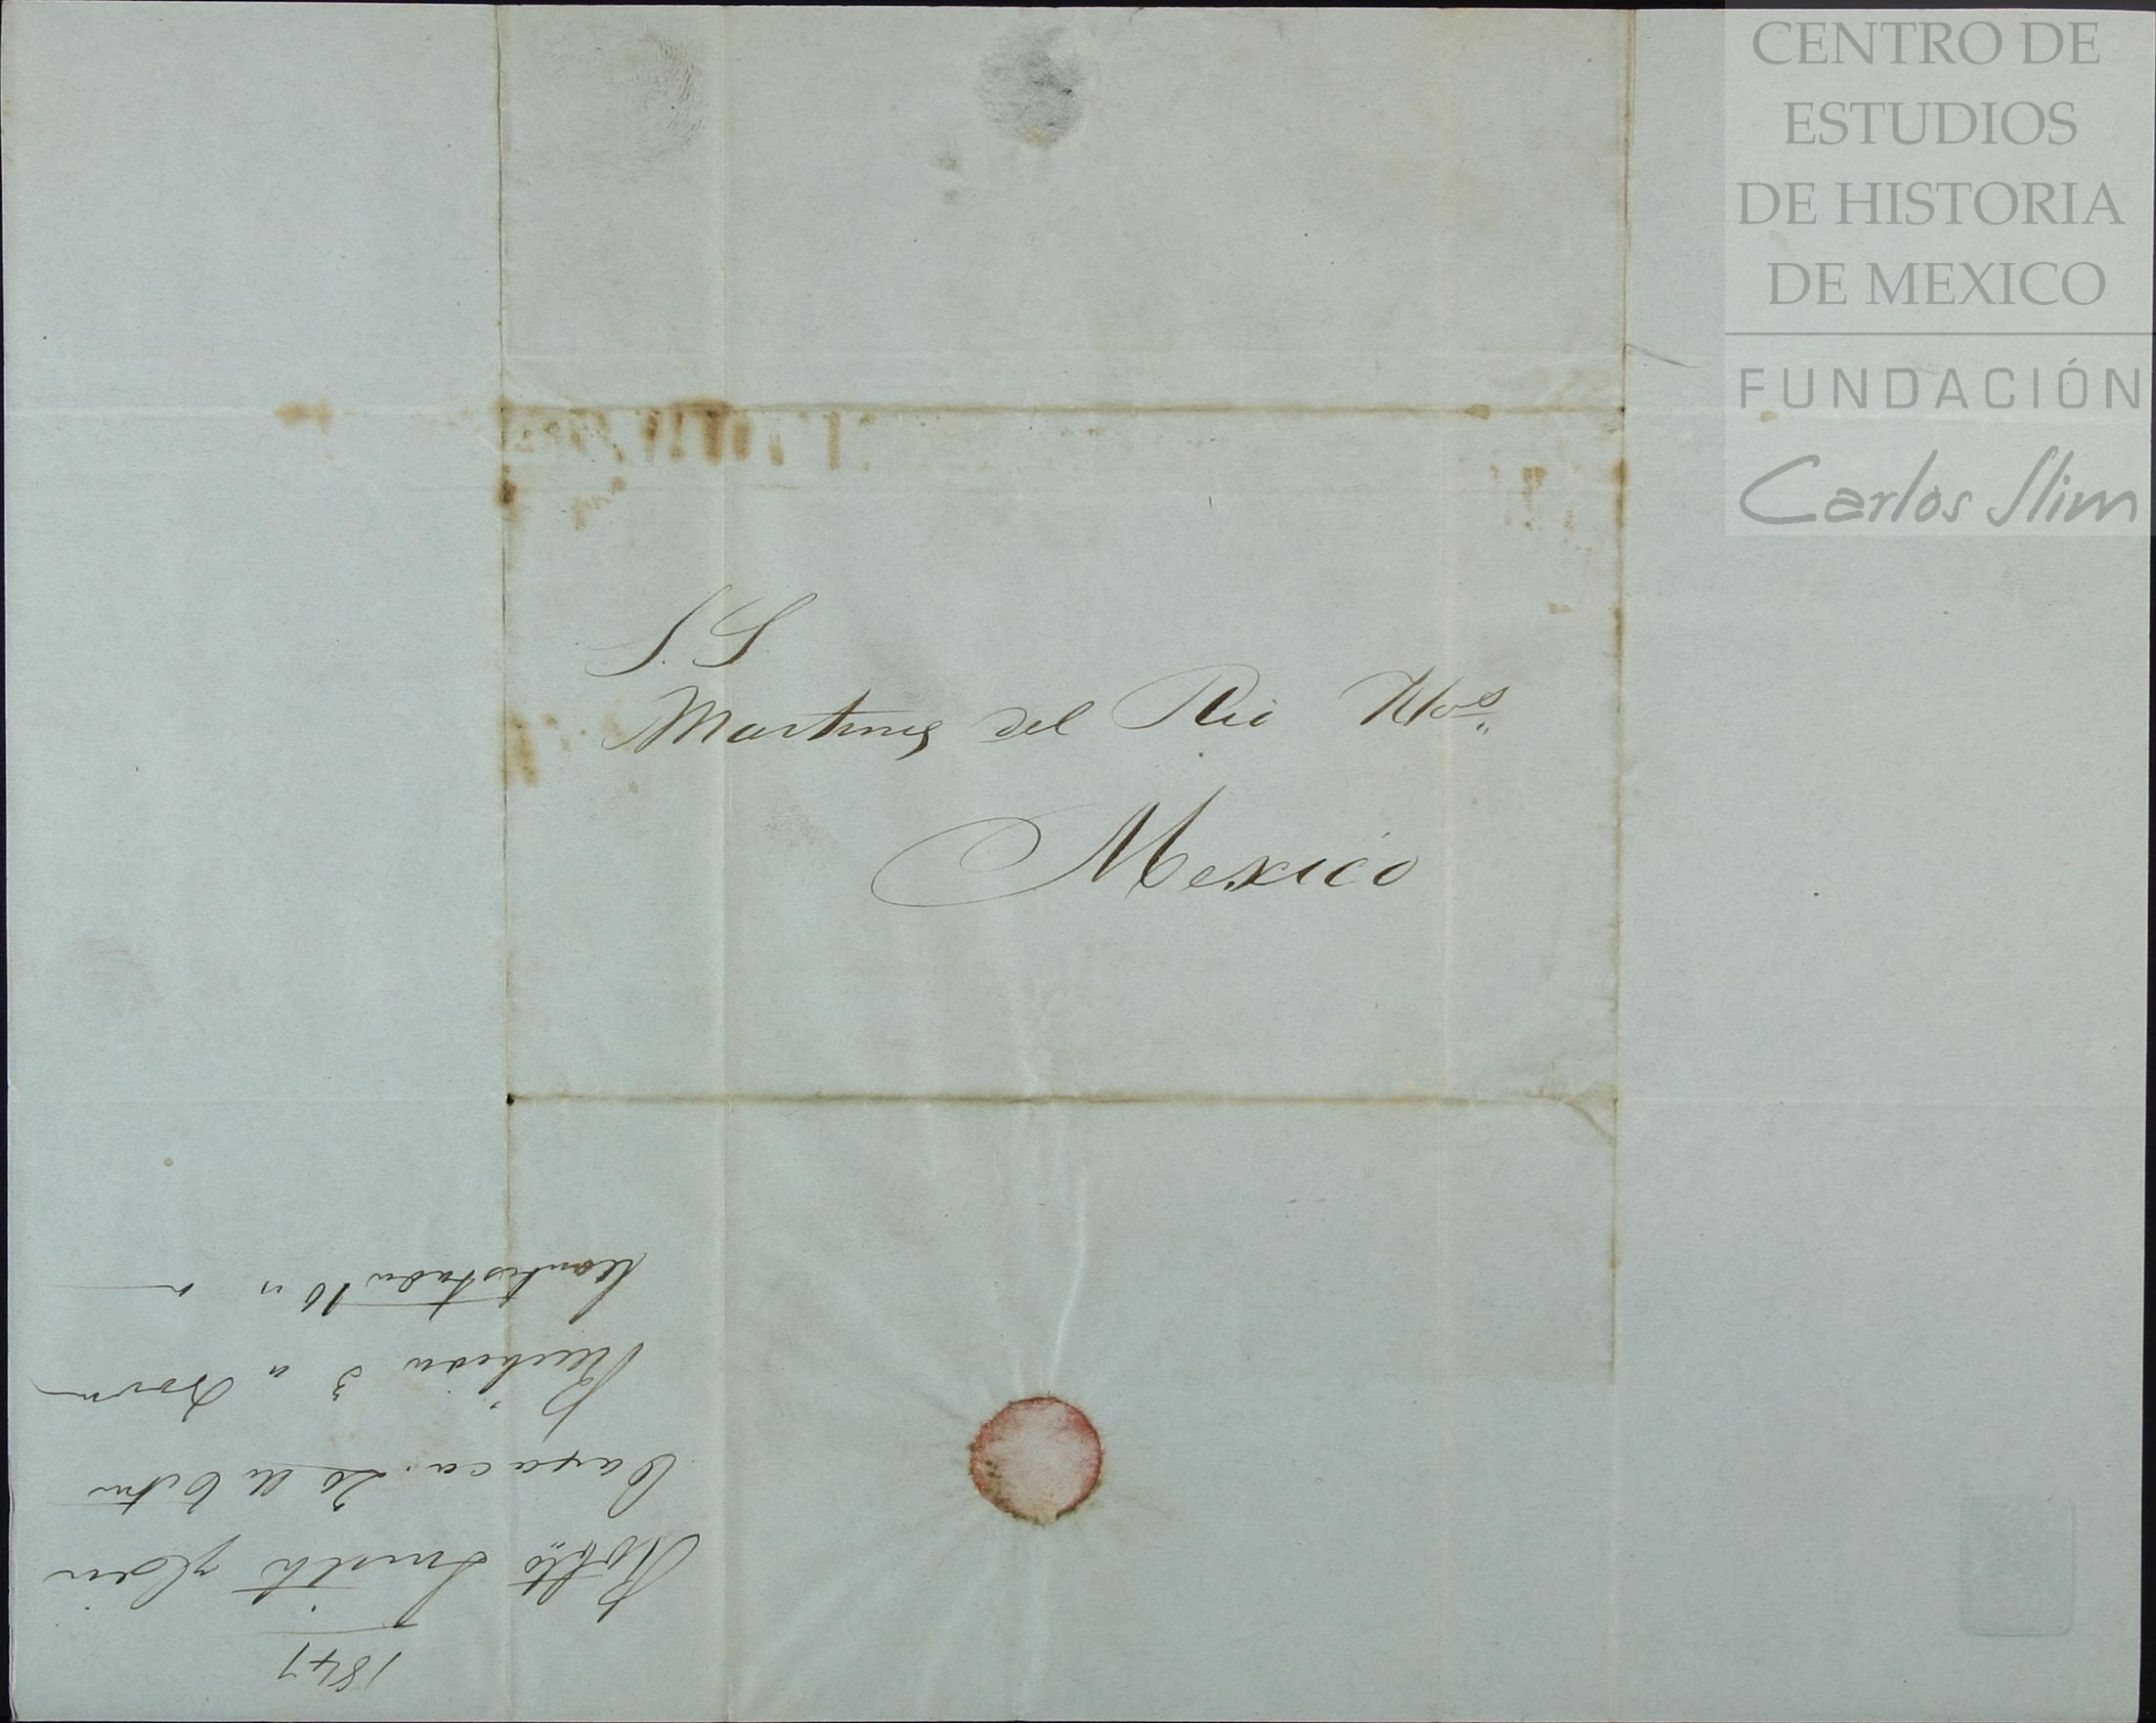 CENTRO DE
ESTUDIOS
DE HISTORIA
DE MEXICO
FUNDACIÓN
Carlos Slim
S. S
Martinez del Rio Hos.
Mexico
1847
Smith
Oaxaca. 20 de Octre
Recibida 3 "
Contestada 10 " "